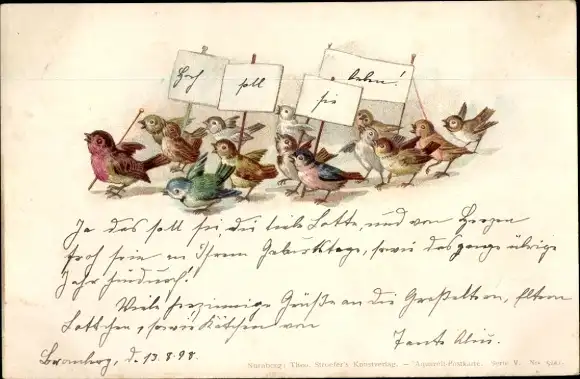 Hoch soll sie leben!
Ja das soll sie, die liebe Lotte, und von Herzen
froh sein an Ihrem Geburtstage, sowie das ganze übrige
Jahr hindurch!
Viele herzinnige Grüße an die Großeltern, Eltern
Lottchen, sowie Käthchen von
Tante
Bromberg, d. 13.8.98.
Nürnberg: Theo. Stroefer's Kunstverlag. — Aquarell-Postkarte. Serie V. No.